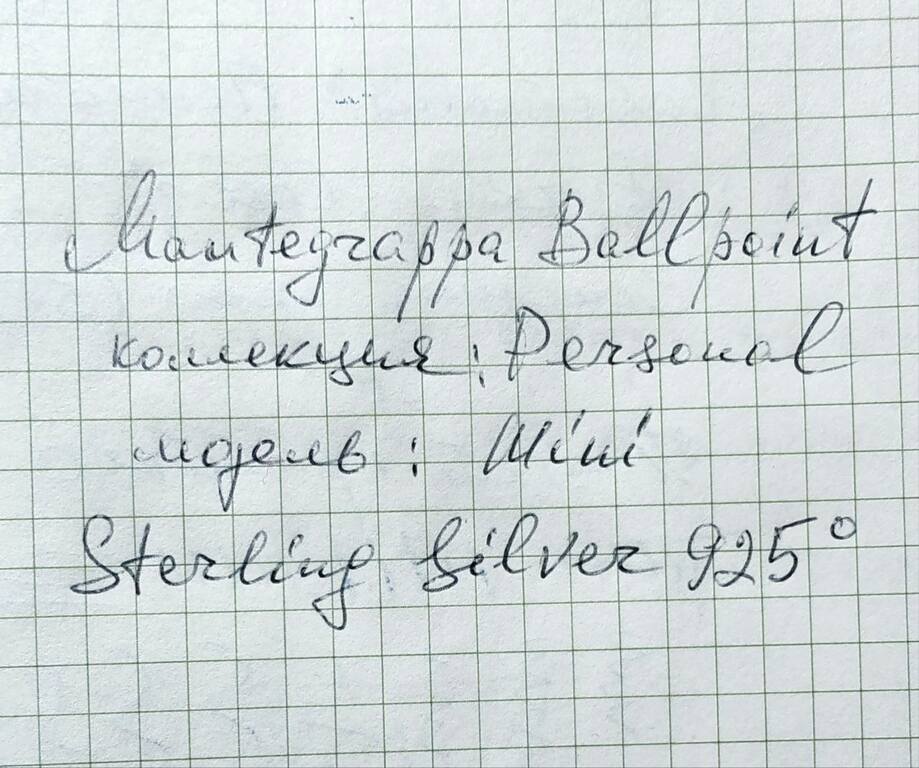 Montegrappa Ballpoint
коллекция: Personal
модель: Mini
Sterling Silver 925°